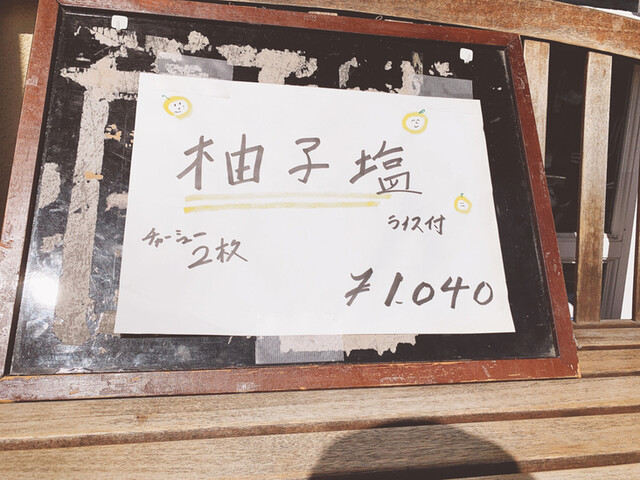 柚子塩
チャーシュー
2枚
ライス付
¥1.040